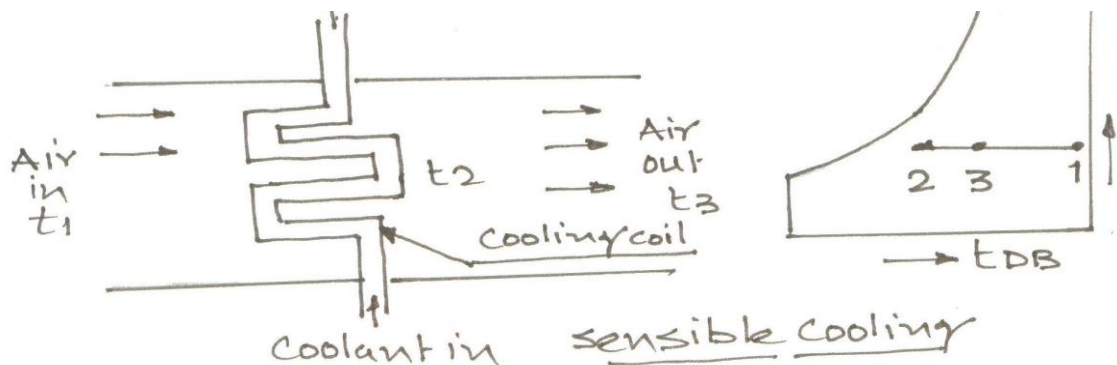 Air
in
t1
t2
Air
out
t3
cooling coil
coolant in
2 3 1
tDB
sensible cooling